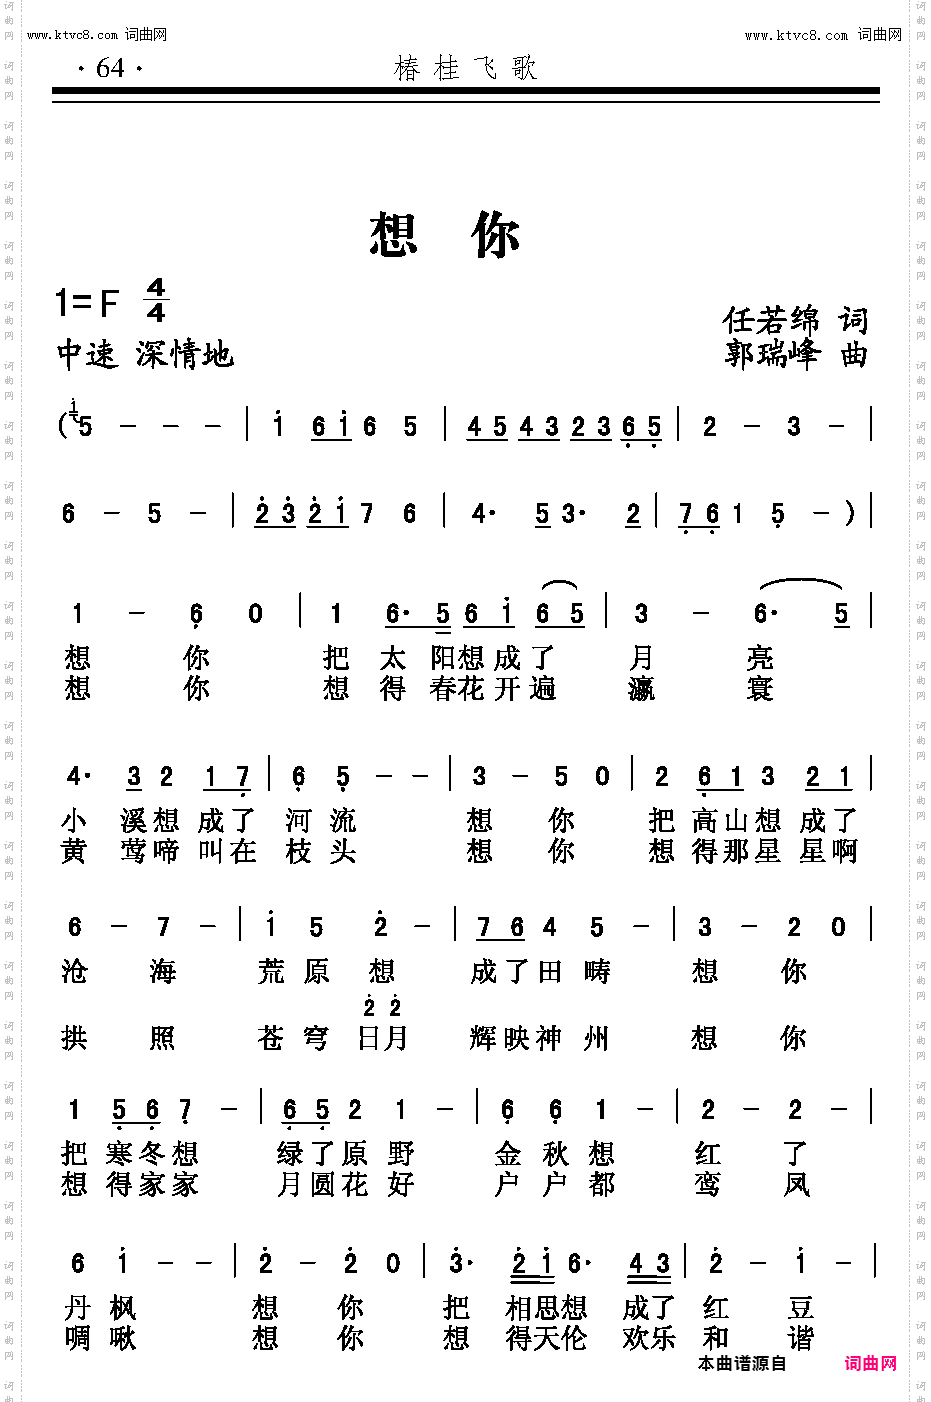 www.ktvc8.com 词曲网
www.ktvc8.com 词曲网
·64·
椿桂飞歌
想 你
1=F 4/4
任若绵 词
中速 深情地
郭瑞峰 曲
(5 - - - | i 6i 6 5 | 45 43 23 65 | 2 - 3 - |
6 - 5 - | 23 21 7 6 | 4· 5 3· 2 | 76 1 5 - ) |
1 - 6 0 | 1 6· 5 6 i 6 5 | 3 - 6· 5 |
想 你 把 太 阳想成了 月 亮
想 你 想 得 春花开遍 瀛 寰
4· 3 2 1 7 | 6 5 - - | 3 - 5 0 | 2 6 1 3 2 1 |
小 溪想 成了 河 流 想 你 把 高山想 成了
黄 莺啼 叫在 枝 头 想 你 想 得那星 星啊
6 - 7 - | i 5 2 - | 7 6 4 5 - | 3 - 2 0 |
沧 海 荒 原 想 成了田 畴 想 你
2 2
拱 照 苍 穹 日月 辉映神 州 想 你
1 5 6 7 - | 6 5 2 1 - | 6 6 1 - | 2 - 2 - |
把 寒冬想 绿了原 野 金 秋 想 红 了
想 得家家 月圆花 好 户 户 都 鸾 凤
6 i - - | 2 - 2 0 | 3· 2 i 6· 4 3 | 2 - i - |
丹 枫 想 你 把 相思想 成了 红 豆
啁 啾 想 你 想 得天伦 欢乐 和 谐
本曲谱源自 词曲网